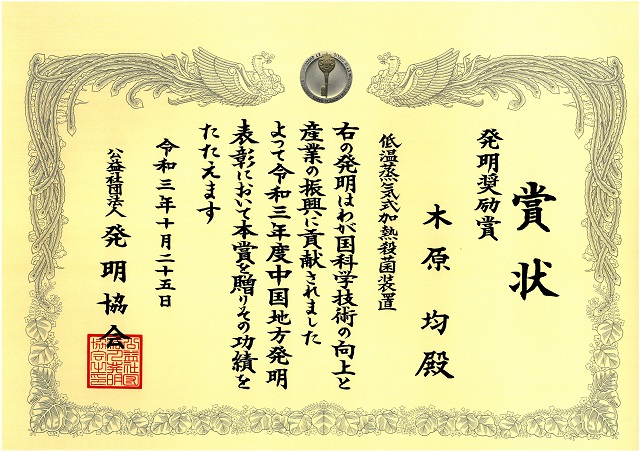 賞状
発明奨励賞
木原 均 殿
低温蒸気式加熱殺菌装置
右の発明はわが国科学技術の向上と
産業の振興に貢献されました
よって令和三年度中国地方発明
表彰において本賞を贈りその功績を
たたえます
令和三年十月二十五日
公益社団法人 発明協会